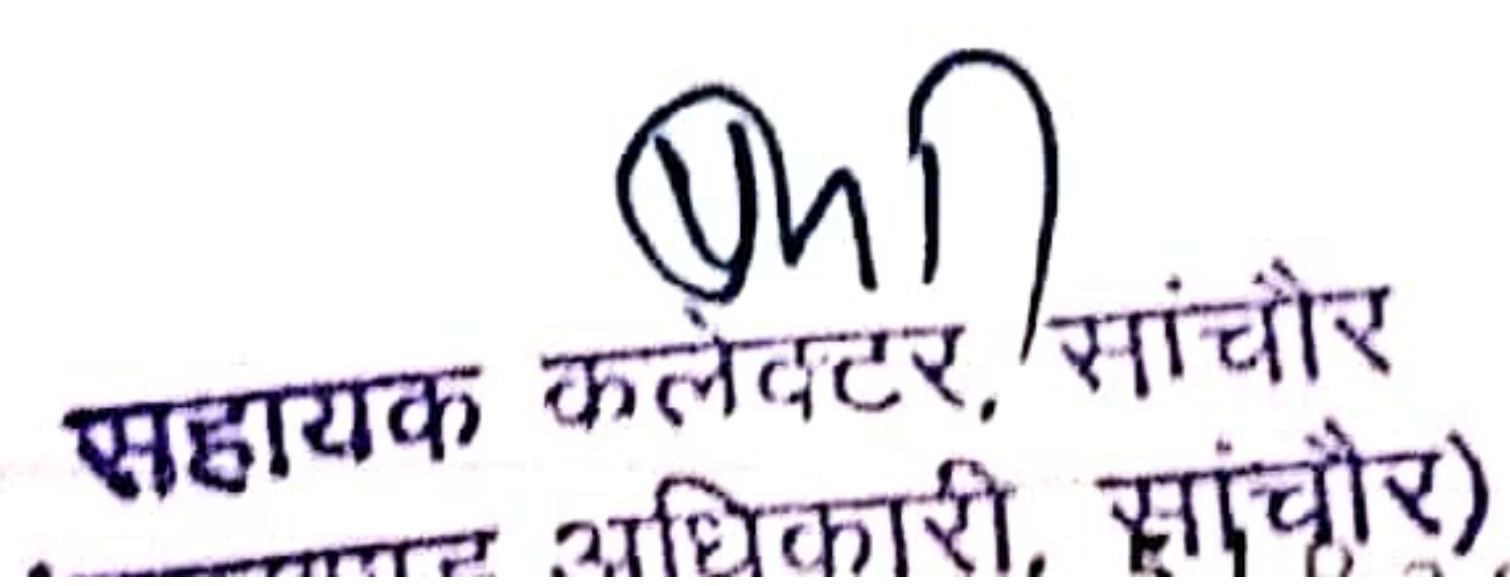 सहायक कलेक्टर, सांचौर
अधिकारी, सांचौर)